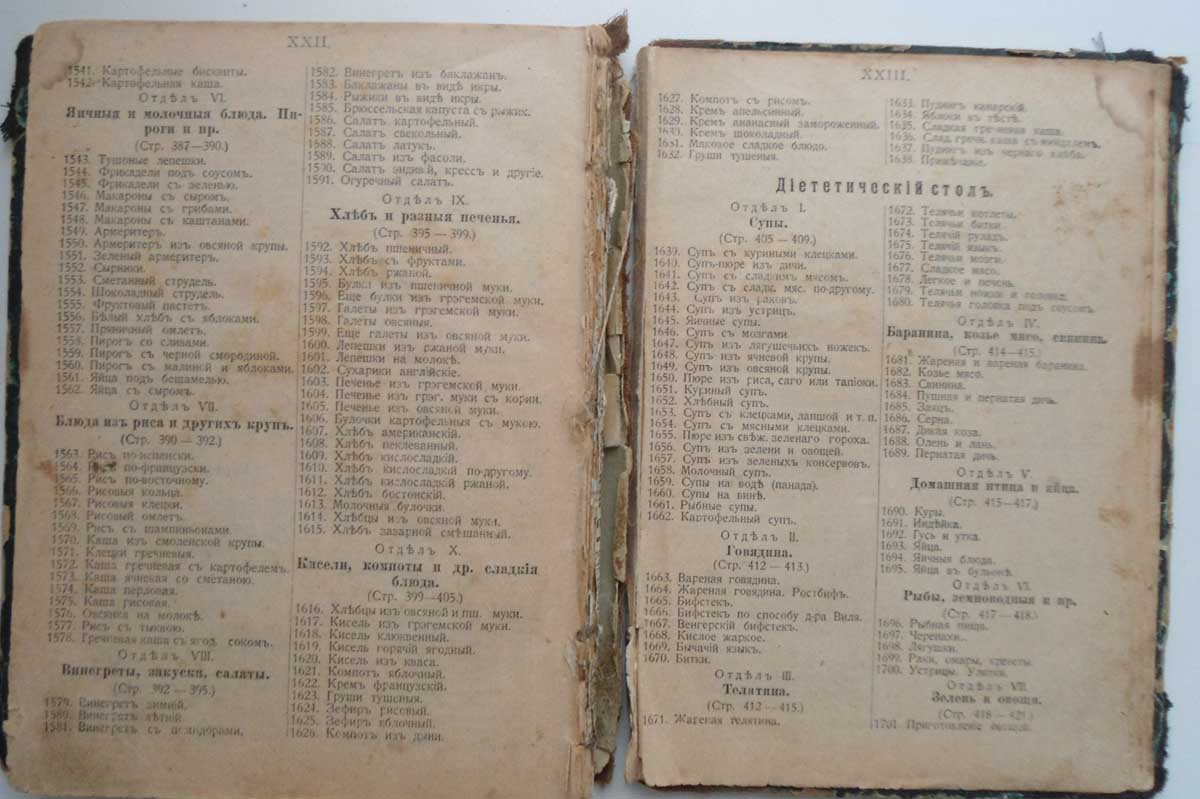 XXII.
1541. Картофельные бисквиты.
1542. Картофельная каша.
Отдѣлъ VI.
Яичныя и молочныя блюда. Пи-
роги и пр.
(Стр. 387—390.)
1543. Тушоные лепешки.
1544. Фрикадели подъ соусомъ.
1545. Фрикадели съ зеленью.
1546. Макароны съ сыромъ.
1547. Макароны съ грибами.
1548. Макароны съ каштанами.
1549. Армеритеръ.
1550. Армеритеръ изъ овсяной крупы.
1551. Зеленый армеритеръ.
1552. Сырники.
1553. Сметанный струдель.
1554. Шоколадный струдель.
1555. Фруктовый паштетъ.
1556. Бѣлый хлѣбъ съ яблоками.
1557. Пряничный омлетъ.
1558. Пирогъ со сливами.
1559. Пирогъ съ черной смородиной.
1560. Пирогъ съ малиной и яблоками.
1561. Яйца подъ бешамелью.
1562. Яйца съ сыромъ.
Отдѣлъ VII.
Блюда изъ риса и другихъ крупъ.
(Стр. 390 — 392.)
1563. Рисъ по-испански.
1564. по-французски.
1565. Рисъ по-восточному.
1566. Рисовыя кольца.
1567. Рисовыя клецки.
1568. Рисовый омлетъ.
1569. Рисъ съ шампиньонами.
1570. Каша изъ смоленской крупы.
1571. Клецки гречневыя.
1572. Каша гречневая съ картофелемъ.
1573. Каша ячневая со сметаною.
1574. Каша перловая.
1575. Каша рисовая.
1576. Овсянка на молокѣ.
1577. Рисъ съ тыквою.
1578. Гречневая каша съ ягод. сокомъ.
Отдѣлъ VIII.
Винегреты, закуска, салаты.
(Стр. 392 — 395.)
1579. Винегретъ зимній.
1580. Винегретъ лѣтній.
1581. Винегретъ съ помидорами.
1582. Винегретъ изъ баклажанъ.
1583. Баклажаны въ видѣ икры.
1584. Рыжики въ видѣ икры.
1585. Брюссельская капуста съ рыжик.
1586. Салатъ картофельный.
1587. Салатъ свекольный.
1588. Салатъ латукъ.
1589. Салатъ изъ фасоли.
1590. Салатъ эндивій, крессъ и другіе.
1591. Огуречный салатъ.
Отдѣлъ IX.
Хлѣбъ и разныя печенья.
(Стр. 395 — 399.)
1592. Хлѣбъ пшеничный.
1593. Хлѣбъ съ фруктами.
1594. Хлѣбъ ржаной.
1595. Булки изъ пшеничной муки.
1596. Еще булки изъ грэгемской муки.
1597. Галеты изъ грэгемской муки.
1598. Галеты овсяныя.
1599. Еще галеты изъ овсяной муки.
1600. Лепешки изъ ржаной муки.
1601. Лепешки на молокѣ.
1602. Сухарики англійскіе.
1603. Печенье изъ грэгемской муки.
1604. Печенье изъ грэг. муки съ корин.
1605. Печенье изъ овсяной муки.
1606. Булочки картофельныя съ мукою.
1607. Хлѣбъ американскій.
1608. Хлѣбъ пеклеванный.
1609. Хлѣбъ кислосладкій.
1610. Хлѣбъ кислосладкій по-другому.
1611. Хлѣбъ кислосладкій ржаной.
1612. Хлѣбъ бостонскій.
1613. Молочныя булочки.
1614. Хлѣбцы изъ овсяной муки.
1615. Хлѣбъ заварной смѣшанный.
Отдѣлъ X.
Кисели, компоты и др. сладкія
блюда.
(Стр. 399—405.)
1616. Хлѣбцы изъ овсяной и пш. муки.
1617. Кисель изъ грэгемской муки.
1618. Кисель клюквенный.
1619. Кисель горячій ягодный.
1620. Кисель изъ кваса.
1621. Компотъ яблочный.
1622. Кремъ французскій.
1623. Груши тушеныя.
1624. Зефиръ рисовый.
1625. Зефиръ яблочный.
1626. Компотъ изъ дыни.
XXIII.
1627. Компотъ съ рисомъ.
1628. Кремъ апельсинный.
1629. Кремъ ананасный замороженный.
1630. Кремъ шоколадный.
1631. Маковое сладкое блюдо.
1632. Груши тушеныя.
1633. Пудингъ канарскій.
1634. Яблоки въ тѣстѣ.
1635. Сладкая гречневая каша.
1636. Слад. гречн. каша съ миндалемъ.
1637. Пудингъ изъ чернаго хлѣба.
1638. Примѣчаніе.
Діететическій столъ.
Отдѣлъ I.
Супы.
(Стр. 405 — 409.)
1639. Супъ съ куриными клецками.
1640. Супъ-пюре изъ дичи.
1641. Супъ съ сладкимъ мясомъ.
1642. Супъ съ сладк. мяс. по-другому.
1643. Супъ изъ раковъ.
1644. Супъ изъ устрицъ.
1645. Яичные супы.
1646. Супъ съ мозгами.
1647. Супъ изъ лягушечьихъ ножекъ.
1648. Супъ изъ ячневой крупы.
1649. Супъ изъ овсяной крупы.
1650. Пюре изъ риса, саго или тапіоки.
1651. Куриный супъ.
1652. Хлѣбный супъ.
1653. Супъ съ клецками, лапшой и т. п.
1654. Супъ съ мясными клецками.
1655. Пюре изъ свѣж. зеленаго гороха.
1656. Супъ изъ зелени и овощей.
1657. Супъ изъ зеленыхъ консервовъ.
1658. Молочный супъ.
1659. Супы на водѣ (панада).
1660. Супы на винѣ.
1661. Рыбные супы.
1662. Картофельный супъ.
Отдѣлъ II.
Говядина.
(Стр. 412 — 413.)
1663. Вареная говядина.
1664. Жареная говядина. Ростбифъ.
1665. Бифстекъ.
1666. Бифстекъ по способу д-ра Виля.
1667. Венгерскій бифстекъ.
1668. Кислое жаркое.
1669. Бычачій языкъ.
1670. Битки.
Отдѣлъ III.
Телятина.
(Стр. 412 — 415.)
1671. Жареная телятина.
1672. Телячьи котлеты.
1673. Телячьи битки.
1674. Телячій руладъ.
1675. Телячій языкъ.
1676. Телячьи мозги.
1677. Сладкое мясо.
1678. Легкое и печень.
1679. Телячьи ножки и головка.
1680. Телячья головка подъ соусомъ.
Отдѣлъ IV.
Баранина, козье мясо, свинина.
(Стр. 414—415.)
1681. Жареная и вареная баранина.
1682. Козье мясо.
1683. Свинина.
1684. Пушная и пернатая дичь.
1685. Заяцъ.
1686. Серна.
1687. Дикая коза.
1688. Олень и лань.
1689. Пернатая дичь.
Отдѣлъ V.
Домашняя птица и яйца.
(Стр. 415—417.)
1690. Куры.
1691. Индѣйка.
1692. Гусь и утка.
1693. Яйца.
1694. Яичныя блюда.
1695. Яйца въ бульонѣ.
Отдѣлъ VI.
Рыбы, земноводныя и пр.
(Стр. 417 — 418.)
1696. Рыбная пища.
1697. Черепахи.
1698. Лягушки.
1699. Раки, омары, креветы.
1700. Устрицы. Улитки.
Отдѣлъ VII.
Зелень и овощи.
(Стр. 418 — 421.)
1701. Приготовленіе овощей.